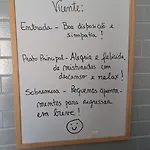 Vicente:
Entrada - Boa disposição e
simpatia!
Prato Principal - Alegria e felicidade
de misturadas com
descanso e relax!
Sobremesa - Pequenos
mentos para regressar
em breve!